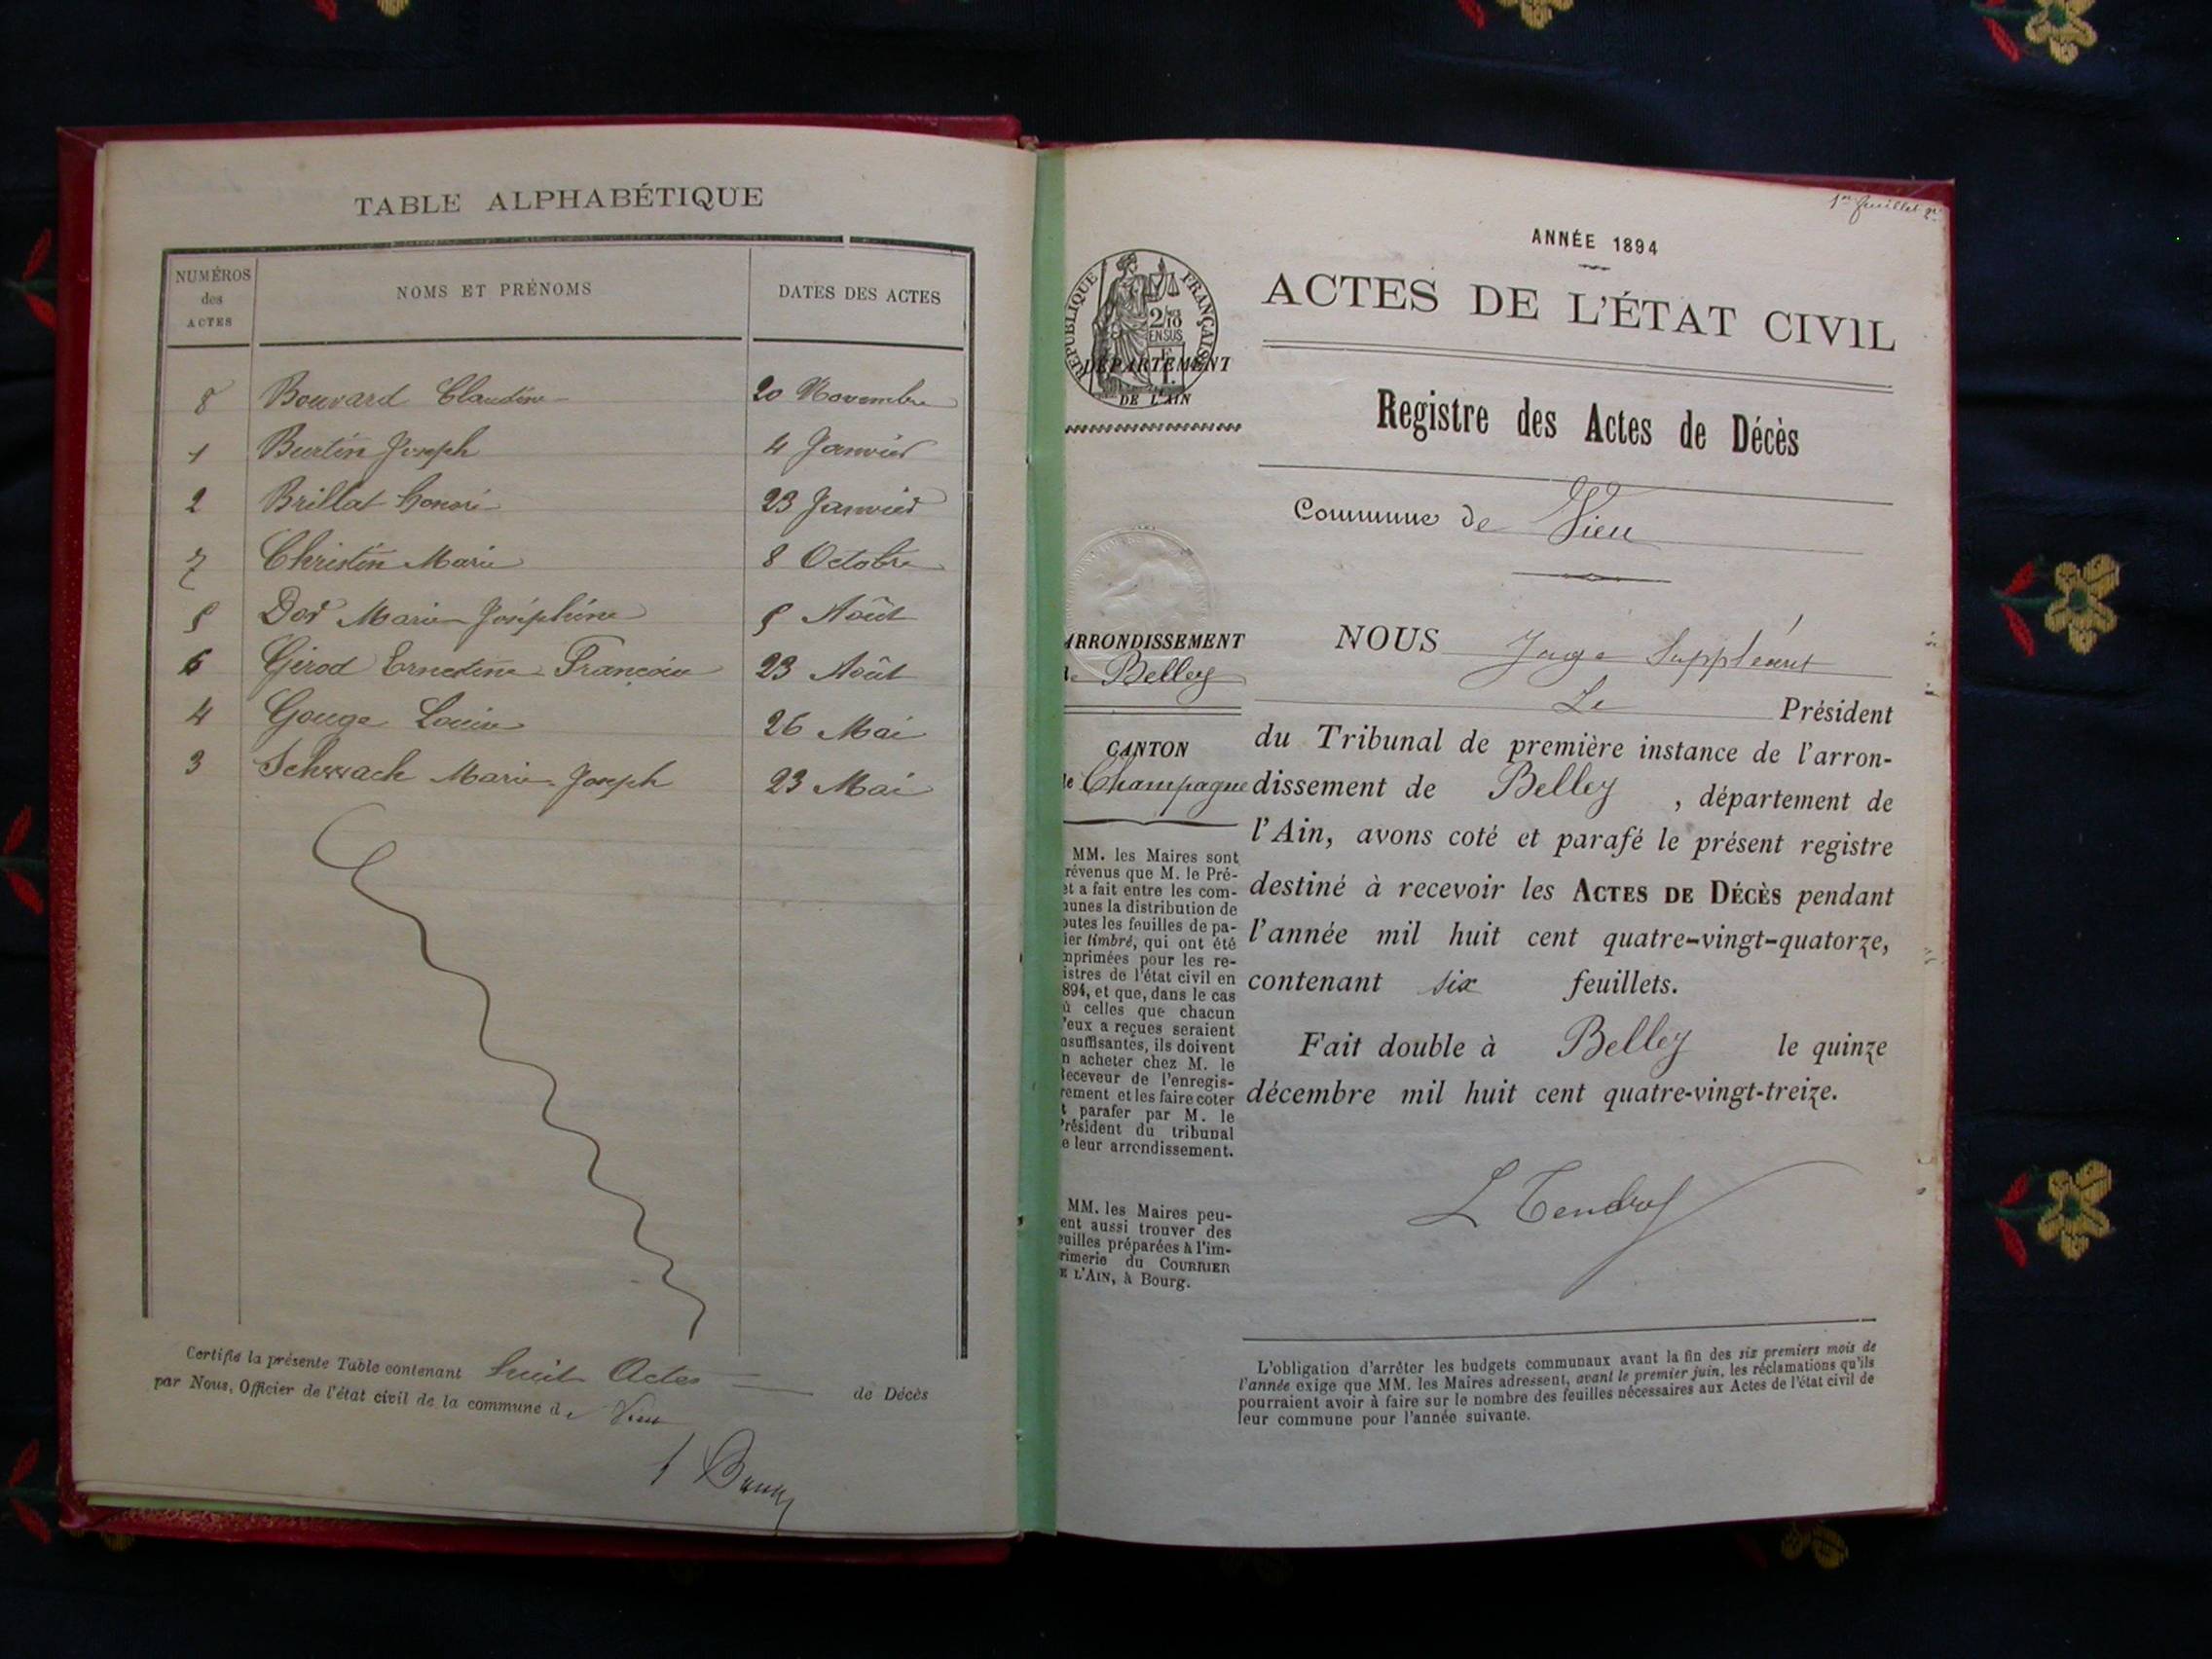 TABLE ALPHABÉTIQUE
NUMÉROS des ACTES NOMS ET PRÉNOMS DATES DES ACTES
8 Bouvard Claudine 20 Novembre
1 Burtin Joseph 4 Janvier
2 Brillat Honoré 23 Janvier
7 Christin Marie 8 Octobre
5 Dod Marie Joséphine 5 Août
6 Gérod Ernestine Françoise 23 Août
4 Gouge Louise 26 Mai
3 Schwach Marie Joseph 23 Mai
Certifié la présente Table contenant huit Actes de Décès
par Nous, Officier de l'état civil de la commune de Vieu
1er feuillet
ANNÉE 1894
ACTES DE L'ÉTAT CIVIL
Registre des Actes de Décès
Commune de Vieu
RÉPUBLIQUE FRANÇAISE
2/10
EN SUS
DÉPARTEMENT
DE L'AIN
ARRONDISSEMENT
de Belley
CANTON
de Champagne
MM. les Maires sont
révenus que M. le Pré-
et a fait entre les com-
unes la distribution de
outes les feuilles de pa-
ier timbré, qui ont été
mprimées pour les re-
istres de l'état civil en
894, et que, dans le cas
ù celles que chacun
'eux a reçues seraient
nsuffisantes, ils doivent
n acheter chez M. le
Receveur de l'enregis-
rement et les faire coter
t parafer par M. le
Président du tribunal
e leur arrondissement.
MM. les Maires peu-
ent aussi trouver des
euilles préparées à l'im-
rimerie du COURRIER
E L'AIN, à Bourg.
NOUS Juge Suppléant
Le Président
du Tribunal de première instance de l'arron-
dissement de Belley, département de
l'Ain, avons coté et parafé le présent registre
destiné à recevoir les ACTES DE DÉCÈS pendant
l'année mil huit cent quatre-vingt-quatorze,
contenant six feuillets.
Fait double à Belley le quinze
décembre mil huit cent quatre-vingt-treize.
L'obligation d'arrêter les budgets communaux avant la fin des six premiers mois de
l'année exige que MM. les Maires adressent, avant le premier juin, les réclamations qu'ils
pourraient avoir à faire sur le nombre des feuilles nécessaires aux Actes de l'état civil de
leur commune pour l'année suivante.